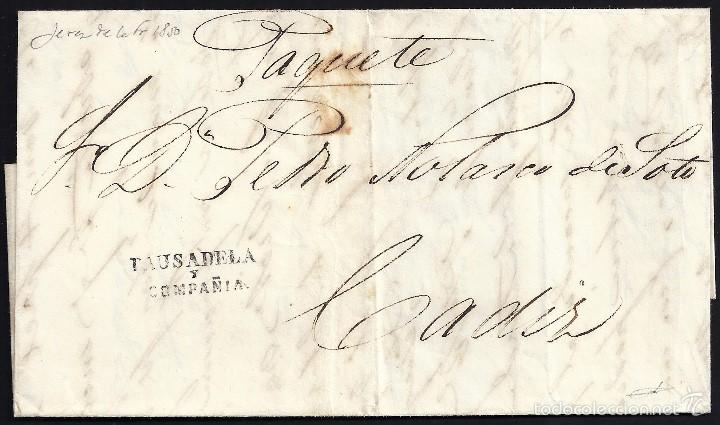 Jerez de la Fr 1850
Paquete
Sr. Dn. Pedro Nolasco de Soto
PAUSADELA
Y
COMPAÑIA.
Cadiz
todocoleccion.net